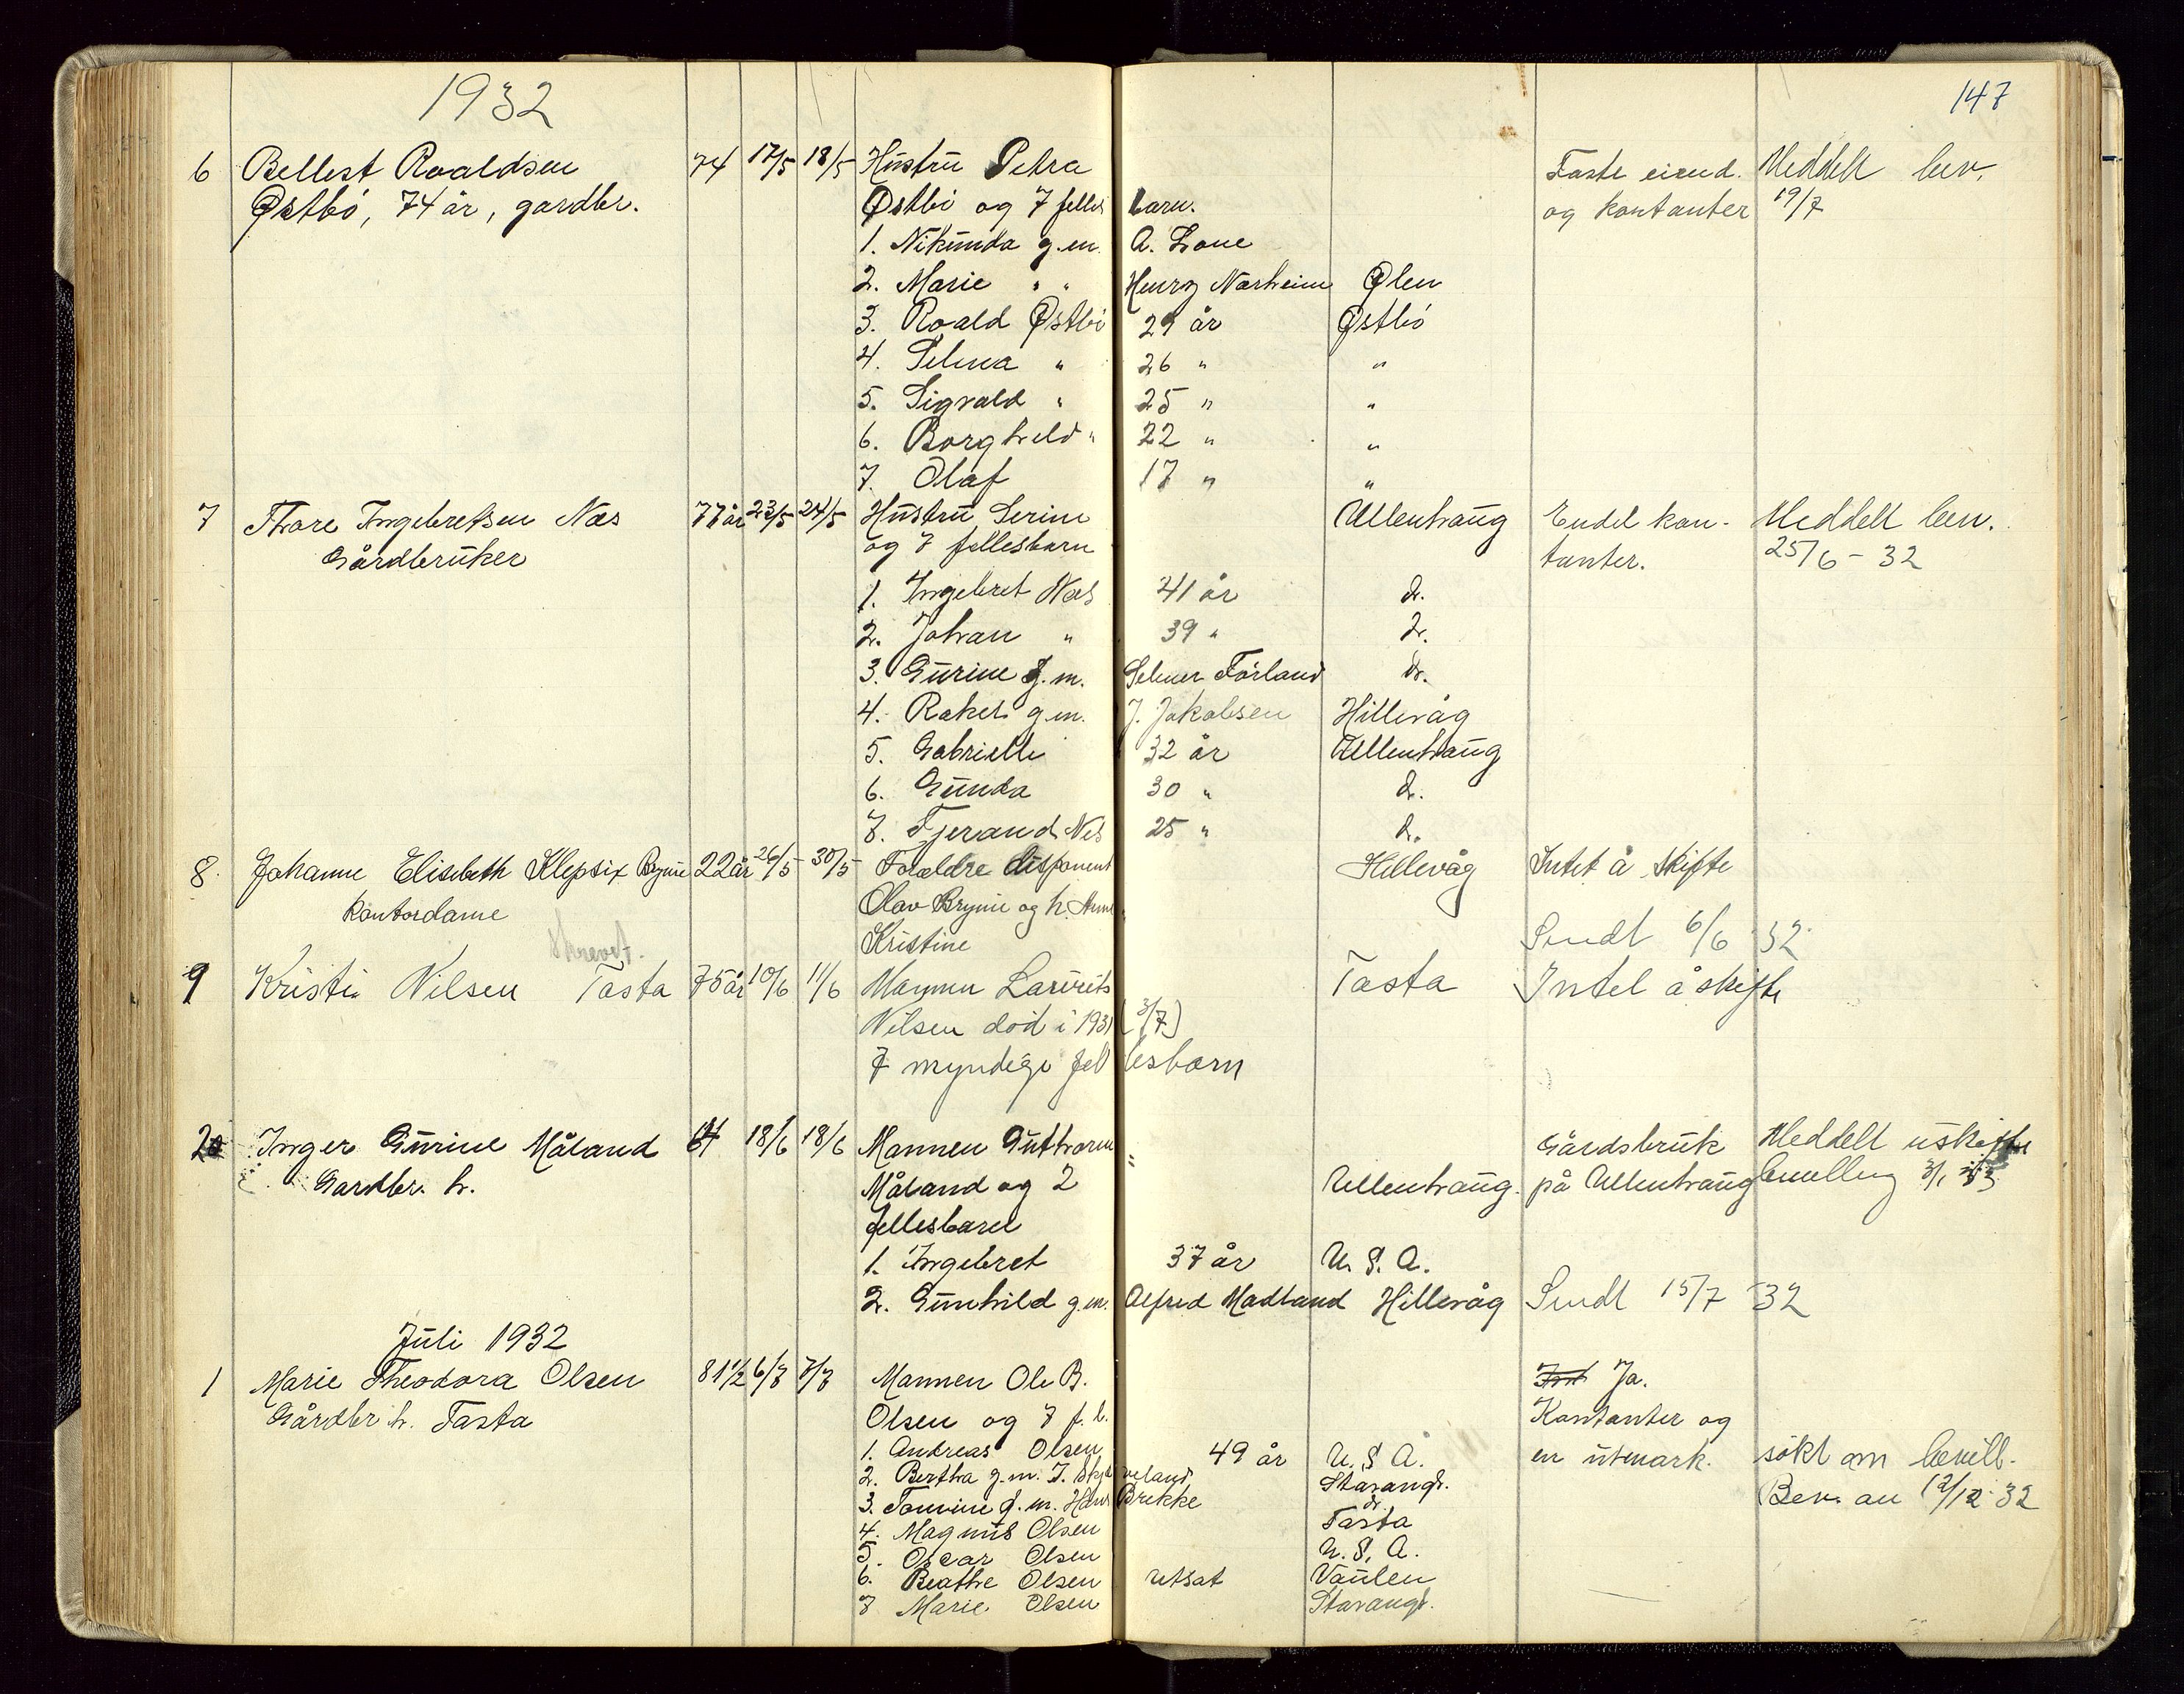 1932
147
6 Bellest Roaldsen 74 17/5 18/5 Hustru Petra Faste eiend. Meddelt bev.
Østbö, 74 år, gardbr. Østbö og 7 felles barn. og kontanter 19/7
1. Nikunda g.m. A. Lone
2. Marie " " Henry Nærheim Ølen
3. Roald Østbö 29 år Østbö
4. Selma " 26 " "
5. Sigvald " 25 " "
6. Borghild " 22 " "
7. Olaf 17 " "
7 Thore Ingebretsen Næs 77 år 23/5 24/5 Hustru Serine Ullenhaug Endel kon- Meddelt bev.
Gårdbruker og 7 fellesbarn tanter. 25/6 - 32
1. Ingebret Næs 41 år d.
2. Johan " 39 " d.
3. Gurine g.m. Selmer Förland d.
4. Rakel g.m. J. Jakobsen Hillevåg
5. Gabrielle 32 år Ullenhaug
6. Gunda 30 " d.
7. Tjerand Nes 25 " d.
8. Johanne Elisabeth Klepsix Bryne 22 år 26/5 30/5 Forældre disponent Hillevåg Intet å skifte
kontordame Olav Bryne og h.
Kristine Sendt 6/6 32
Skrevet.
9 Kristi Nilsen Tasta 75 år 10/6 11/6 Mannen Laurits Tasta Intet å skifte
Nilsen död i 1931 (3/7)
7 myndige fellesbarn
20 Inger Gurine Måland 64 18/6 18/6 Mannen Guthorm Gårdsbruk Meddelt uskifte
Gardbr. h. Måland og 2 Ullenhaug. på Ullenhaug bevilling 3/1 33
fellesbarn
1. Ingebret 37 år U. S. A.
2. Gunhild g.m. Alfred Madland Hillevåg Sendt 15/7 32
Juli 1932
1 Marie Theodora Olsen 81 1/2 6/7 7/7 Mannen Ole B. Ja.
Gårdbr. h. Tasta Olsen og 7 f. b. Kontanter og
1. Andreas Olsen 49 år U. S. A. en utmark. søkt om bevill.
2. Bertha g.m. T. Skjæveland Stavang. Bev. au 12/12 32
3. Tomine g.m. Hans Brekke d.
4. Magnus Olsen Tasta
5. Oscar Olsen U. S. A.
6. Beathe Olsen Vaulen
7 Marie Olsen Stavang.